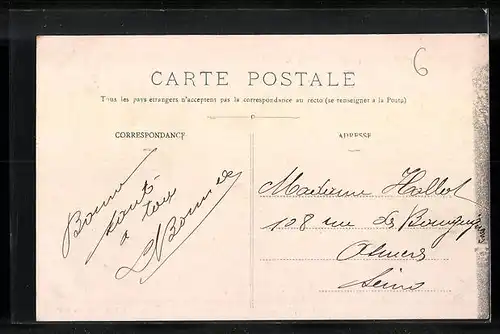 6
CARTE POSTALE
Tous les pays étrangers n'acceptent pas la correspondance au recto (se renseigner à la Poste)
CORRESPONDANCE
ADRESSE
Bonne
santé
à tous
Madame Hallet
108 rue de
Seine